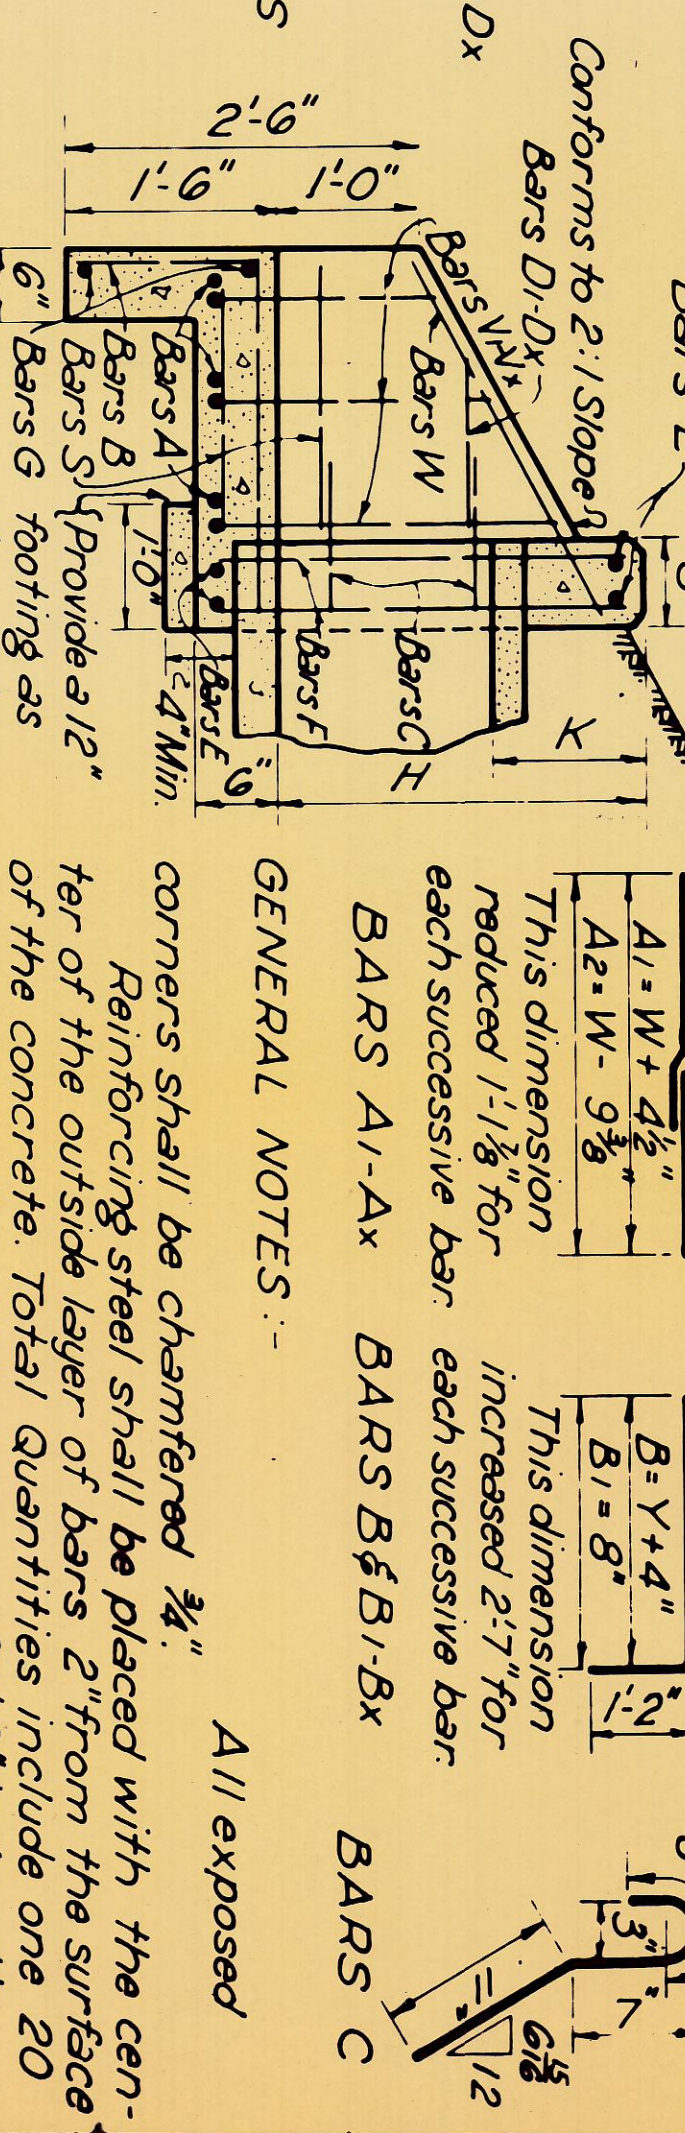 Dx
Conforms to 2:1 Slope
Bars D1-Dx
Bars V1-Vx
2'-6"
1'-6"
1'-0"
6"
Bars W
Bars A
Bars B
Bars S
Bars G
{Provide a 12"
footing as
1'-0"
4" Min.
Bars E
Bars F
Bars C
9"
K
H
A1 = W + 4½"
A2 = W - 9⅜"
This dimension
reduced 1'-1⅞" for
each successive bar.
BARS A1-Ax
B = Y + 4"
B1 = 8"
1'-2"
This dimension
increased 2'-7" for
each successive bar.
BARS B & B1-Bx
3"
7"
11"
12
6 15/16
BARS C
GENERAL NOTES:-
All exposed
corners shall be chamfered ¾".
Reinforcing steel shall be placed with the cen-
ter of the outside layer of bars 2" from the surface
of the concrete. Total Quantities include one 20